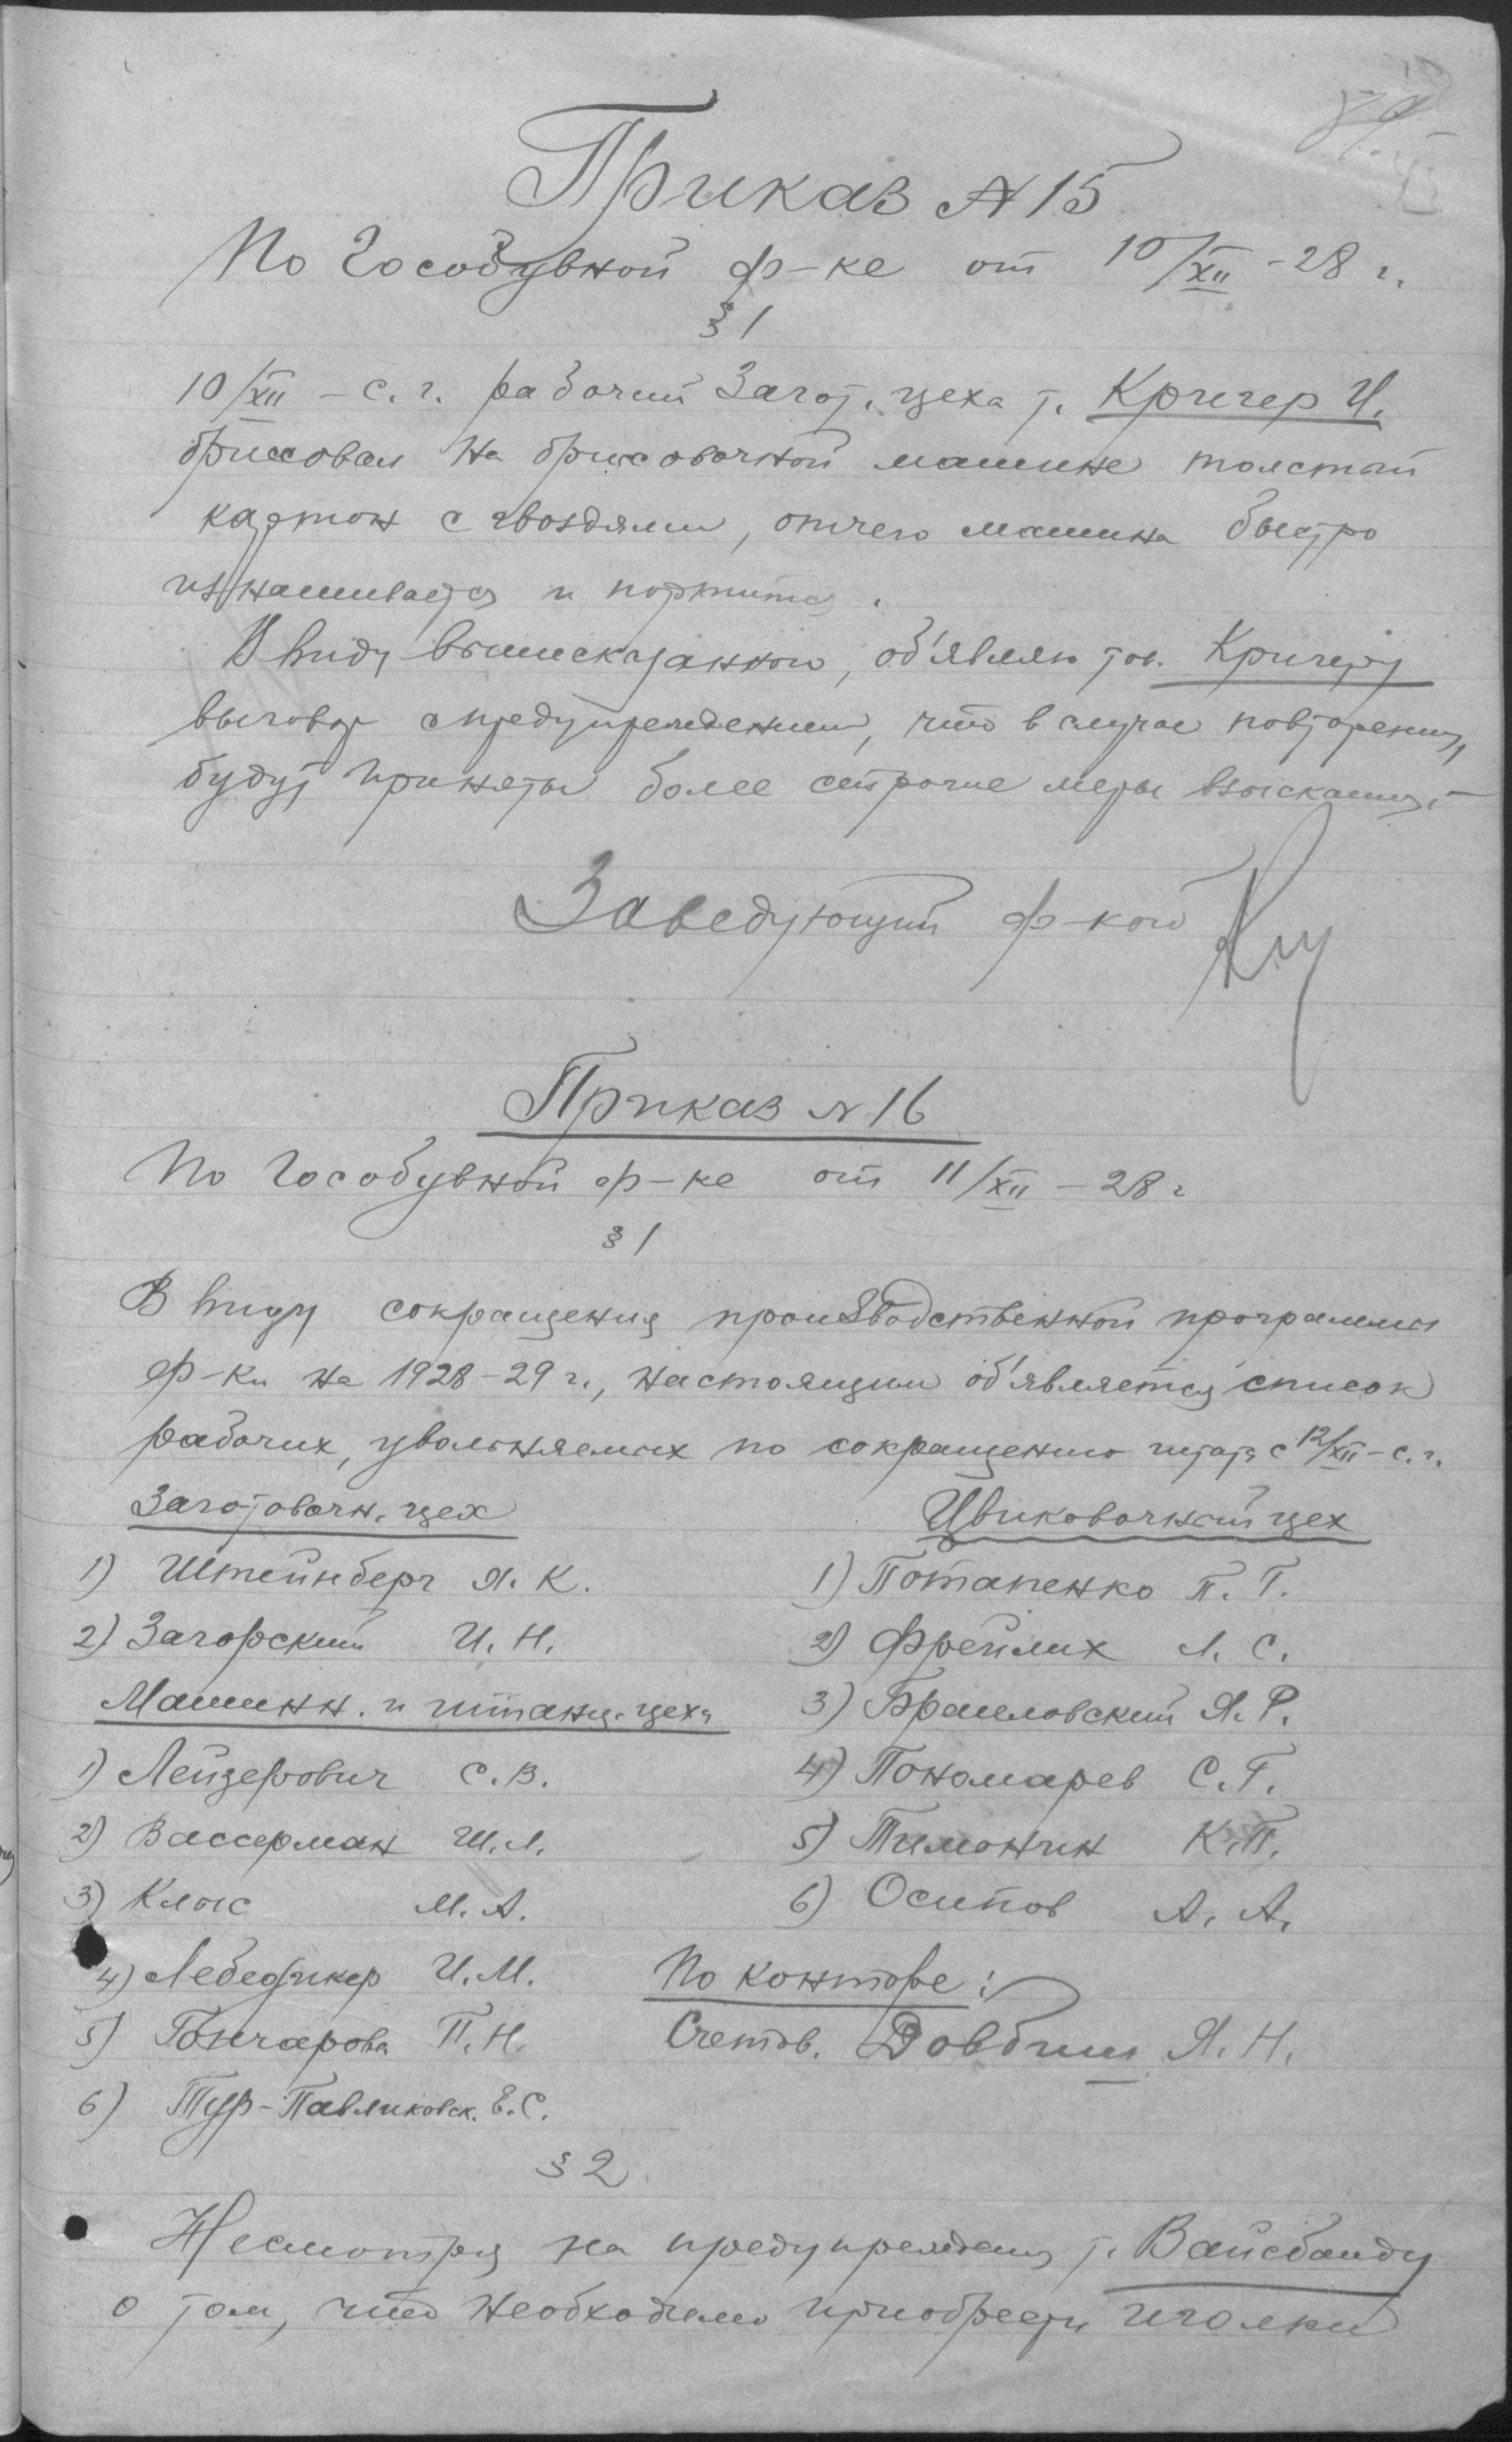 Приказ № 15
По Гособувной ф-ке от 10/XII - 28 г.
§ 1
10/XII - с. г. рабочий Загот. цеха т. Кригер И.
брисовал на брисовочной машине толстый
картон с гвоздями, отчего машина быстро
изнашивается и портится.
В виду вышесказанного, об'являю тов. Кригеру
выговор с предупреждением, что в случае повторения,
будут приняты более строгие меры взыскания. -
Заведующий ф-кой
Приказ № 16
По Гособувной ф-ке от 11/XII - 28 г
§ 1
В виду сокращения производственной программы
ф-ки на 1928-29 г., настоящим об'является список
рабочих, увольняемых по сокращению штата с 12/XII - с. г.
Заготовочн. цех
1) Штейнберг Я. К.
2) Загорский И. Н.
Машинн. и штанц. цеха
1) Лейзерович С. В.
2) Вассерман Ш. Л.
3) Клыс М. А.
4) И. М.
5) Гончарова П. Н.
6) Тур-Павликовск. Е. С.
Цвиковочный цех
1) Потапенко П. Г.
2) Фрейлих Л. С.
3) Браиловский Я. Р.
4) Пономарев С. Г.
5) Тимонин К. П.
6) Осипов А. А.
По конторе:
Счетов. Довбиш Я. Н.
§ 2
Несмотря на предупреждения т. Вайсбанду
о том, что необходимо приобрести иголки